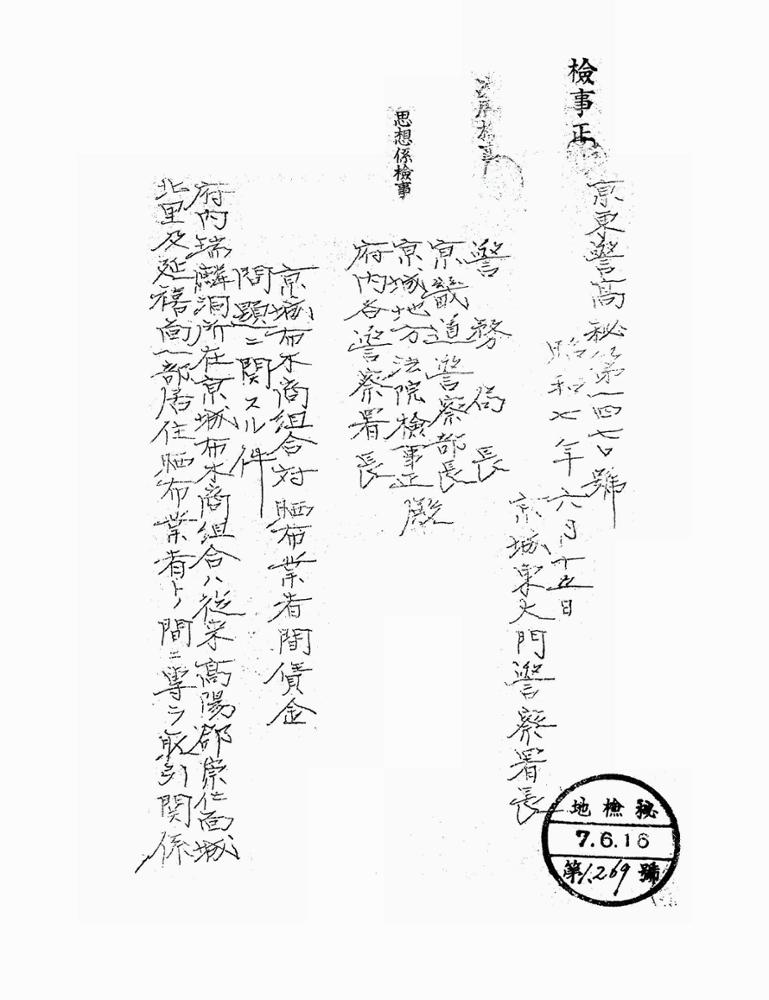 檢事正
京東警高秘第一四七〇號
昭和七年六月十五日
京城東大門警察署長
警務局長
京畿道警察部長
京城地方法院檢事正殿
府内各警察署長
思想係檢事
京城布木商組合対晒布業者間債金
問題ニ関スル件
府内瑞麟洞所在京城布木商組合ハ従来高陽郡崇仁面城
北里及延禧面一部居住晒布業者トノ間ニ専ラ取引関係
地檢秘
7.6.16
第1,269號